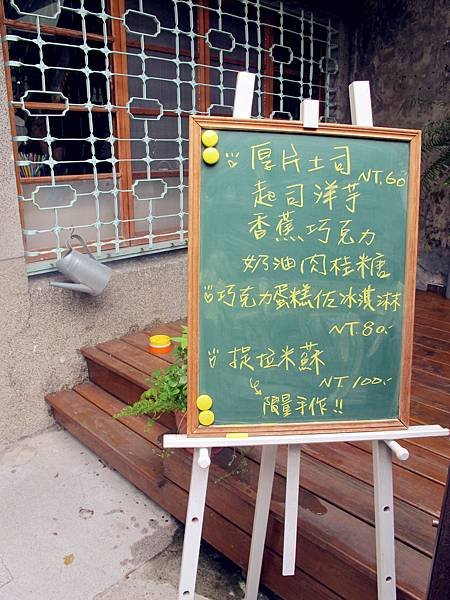 厚片土司
NT.60
起司洋芋
香蕉巧克力
奶油肉桂糖
巧克力蛋糕佐冰淇淋
NT.80.-
提拉米蘇
NT.100.-
限量手作!!